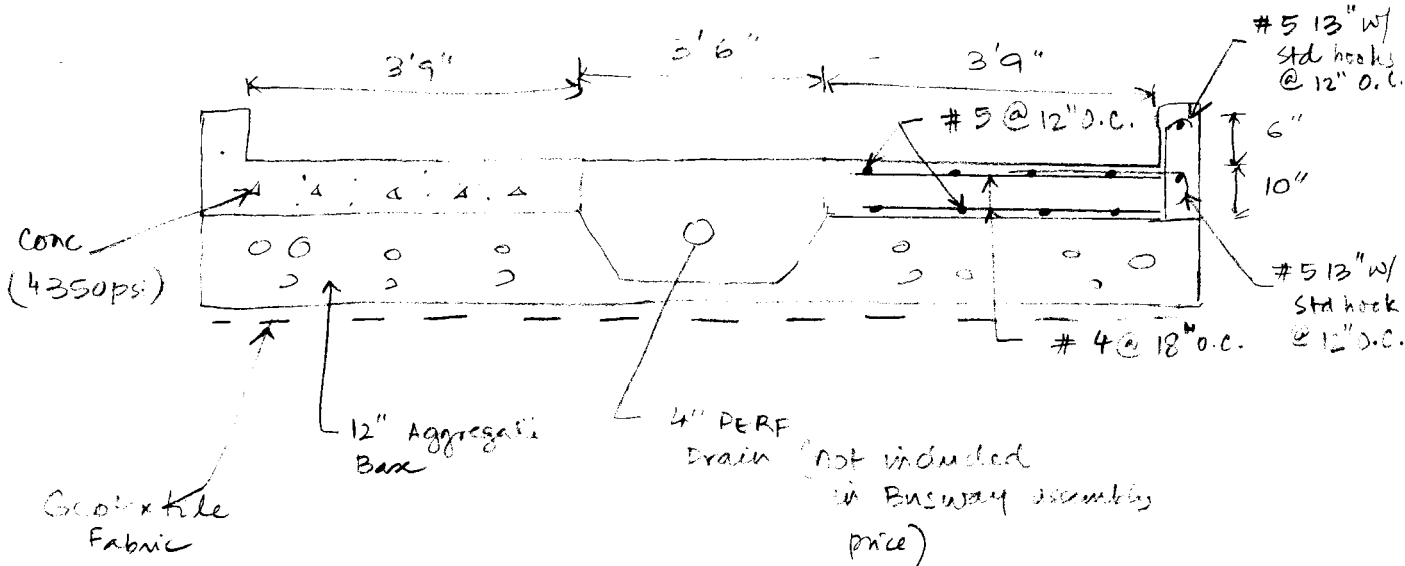 3'9"
3'6"
3'9"
#5 13" w/
std hooks
@ 12" O.C.
#5 @ 12" O.C.
6"
10"
Conc
(4350psi)
#5 13" w/
Std hook
@ 12" O.C.
#4 @ 18" O.C.
12" Aggregate
Base
4" PERF
Drain (not included
in Busway assembly
price)
Geotextile
Fabric